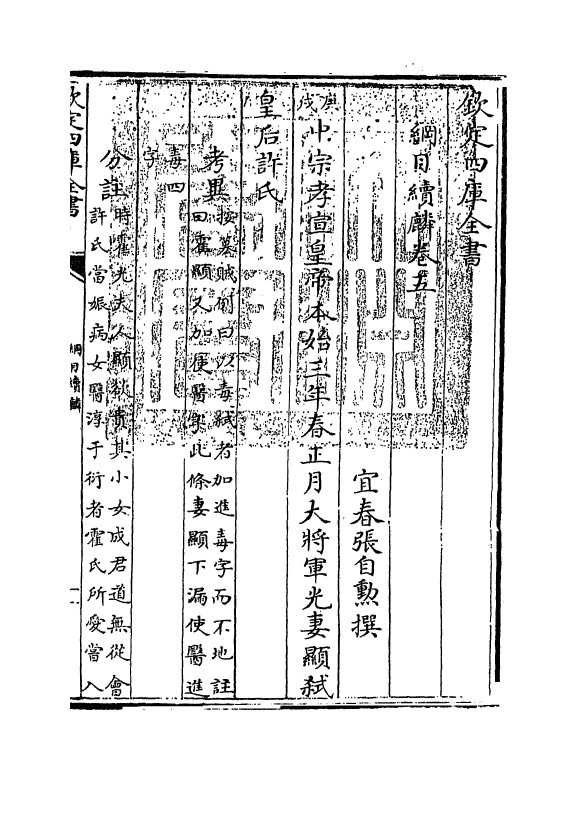 欽定四庫全書
綱目續麟卷五
宜春張自勲撰
庚戌中宗孝宣皇帝本始三年春正月大將軍光妻顯弑
皇后許氏
考異按墓賊例曰以毒弑者加進毒字而不地註
曰霍顯又加使醫字此條妻顯下漏使醫進
毒四
字
分註時霍光夫人顯欲貴其小女成君道無從會
許氏當娠病女醫淳于衍者霍氏所愛嘗入
欽定四庫全書
綱目續麟
一